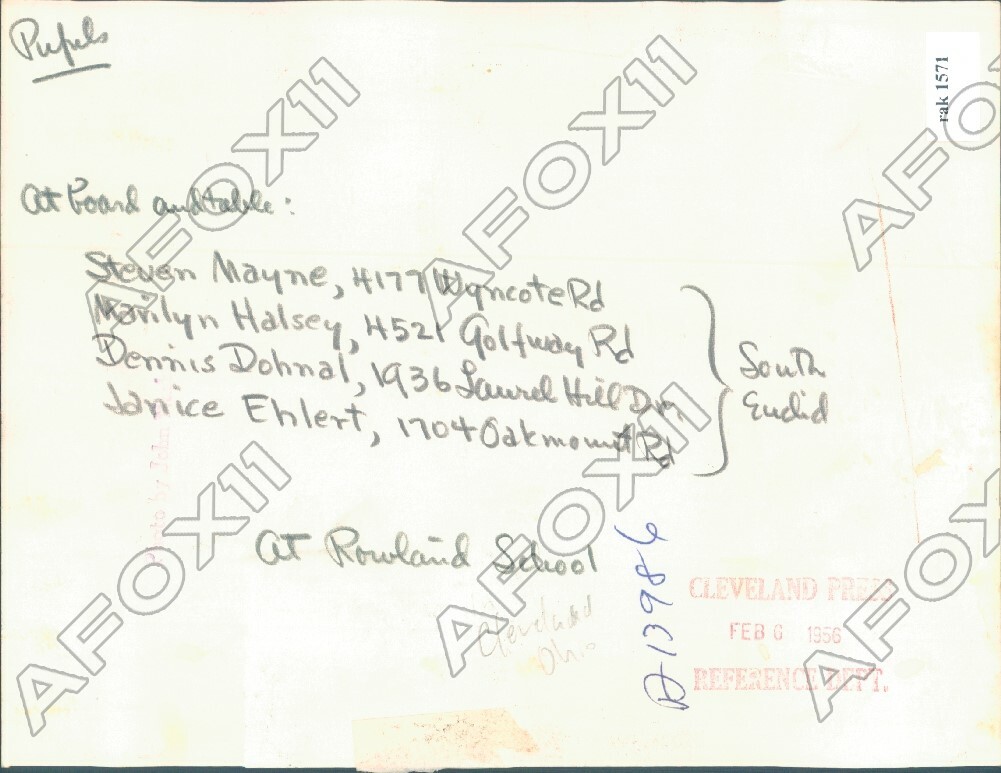 Pupils
rak 1571
At board and table:
Steven Mayne, 4177 Wyncote Rd
Marilyn Halsey, 4521 Golfway Rd
Dennis Dohnal, 1936 Laurel Hill Dr
Janice Ehlert, 1704 Oakmount Rd
South
Euclid
At Rowland School
Cleveland
Ohio
D-1398-6
CLEVELAND PRESS
FEB 6 1956
REFERENCE DEPT.
Photo by John
AFOX11
AFOX11
AFOX11
AFOX11
AFOX11
AFOX11